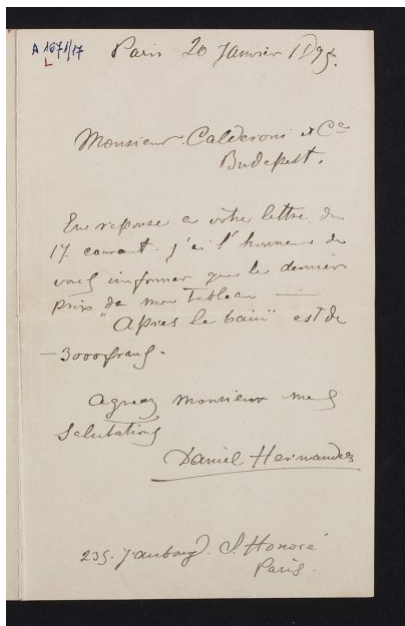 A 1671/17
L
Paris 20 Janvier 1895.
Monsieur Calderoni et Cie
Budapest.
En reponse a votre lettre du
17 courant j'ai l'honneur de
vous informer que le dernier
prix de mon Tableau —
"Apres le bain" est de
— 3000 francs.
Agreez Monsieur mes
Salutations
Daniel Hernandez
235. Faubourg. St Honoré
Paris.